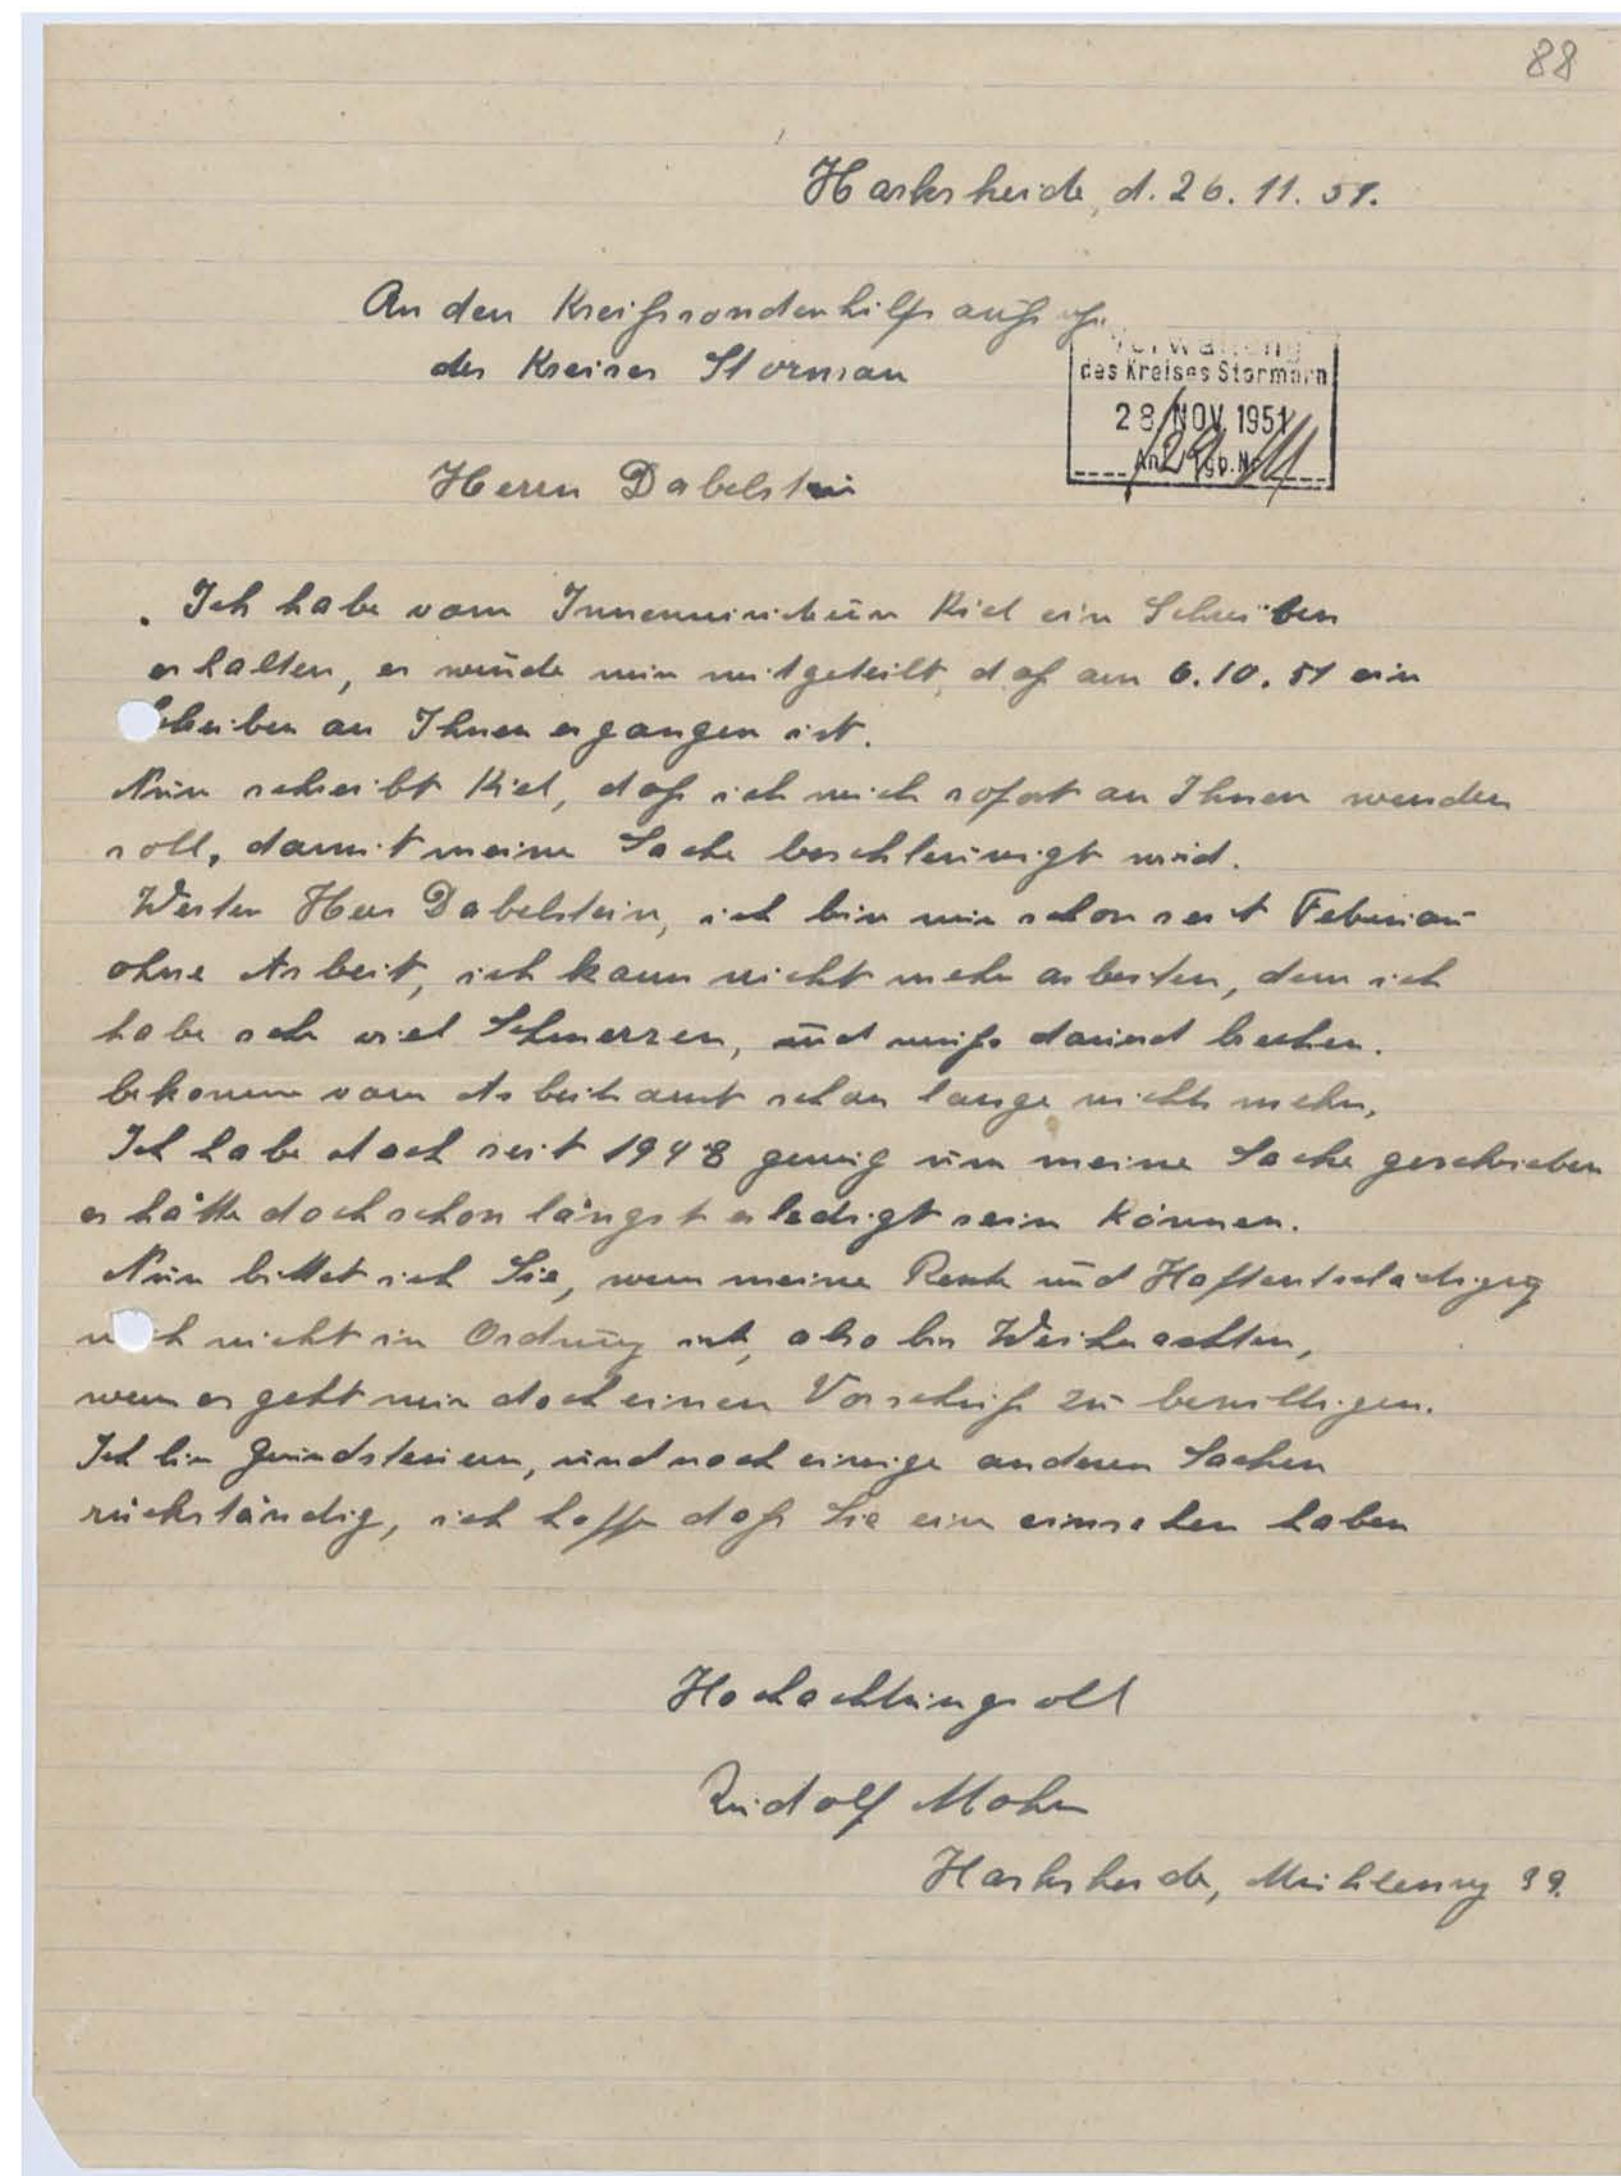 88
Harksheide, d. 26. 11. 51.
An den Kreißsonderhilfsaußsch.
des Kreises Storman
Verwaltung
des Kreises Stormarn
28. NOV. 1951
Herrn Dabelstein
Ich habe vom Innenministeriün Kiel ein Schreiben
erhalten, es wurde mir mitgeteilt, daß am 6.10.51 ein
Schreiben an Ihnen ergangen ist.
Nun schreibt Kiel, daß ich mich sofort an Ihnen wenden
soll, damit meine Sache beschleunigt wird.
Werter Herr Dabelstein, ich bin nun schon seit Februar
ohne Arbeit, ich kann nicht mehr arbeiten, denn ich
habe sehr viel Schmerzen, und muß dauernd brechen.
bekomme vom Arbeitsamt schon lange nichts mehr,
Ich habe doch seit 1948 genug um meine Sache geschrieben
es hätte doch schon längst erledigt sein können.
Nun bittet ich Sie, wenn meine Rente und Haftentschädigung
noch nicht in Ordnung ist, also bis Weihnachten,
wenn es geht mir doch einen Vorschuß zu bewilligen.
Ich bin Grundsteuern, und noch einige anderen Sachen
rückständig, ich hoffe daß Sie ein einsehen haben
Hochachtungsvoll
Rudolf Mohr
Harksheide, Mühlenweg 39.